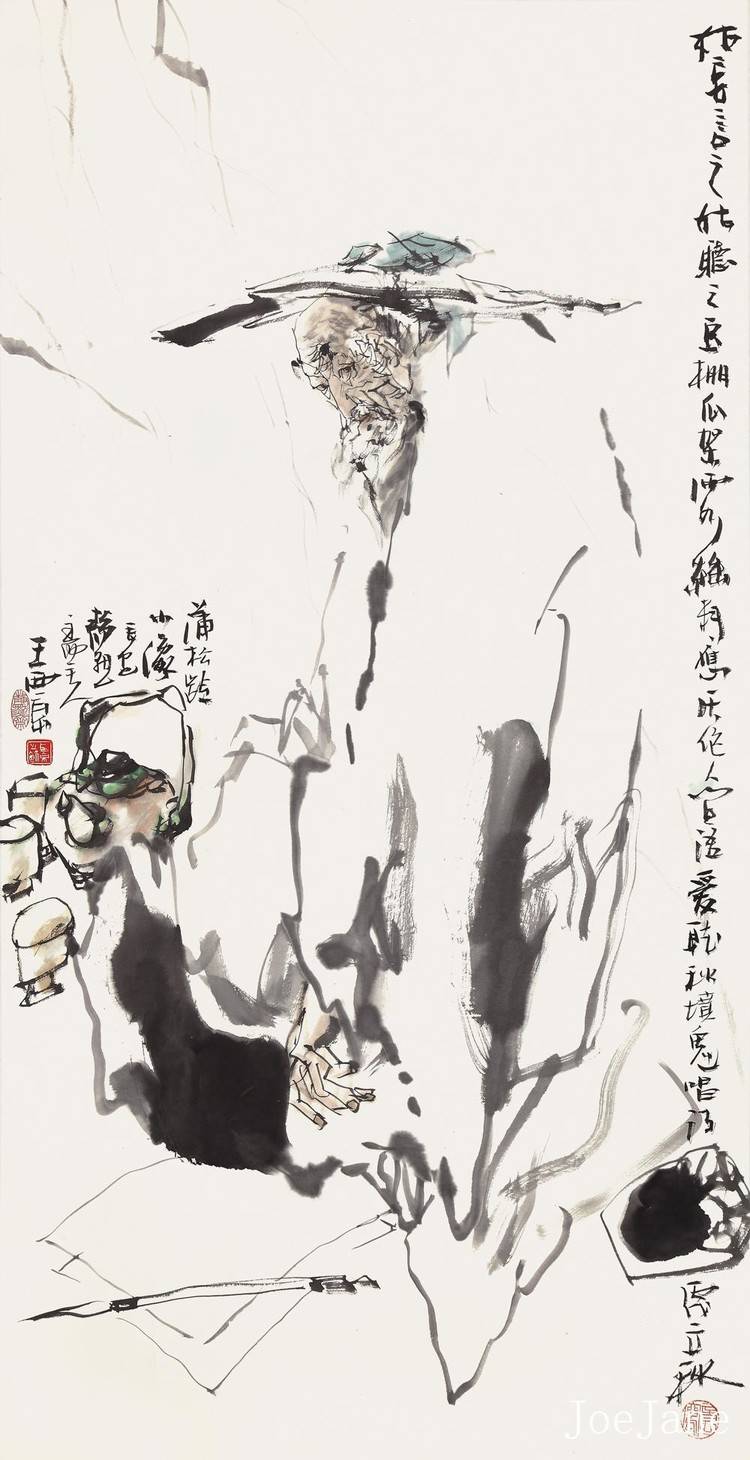 姑妄言之姑聽之豆棚瓜架雨如絲料應厌作人间语爱听秋墳鬼唱诗
立秋
蒲松龄
小像
主人
王西京
JoeJane